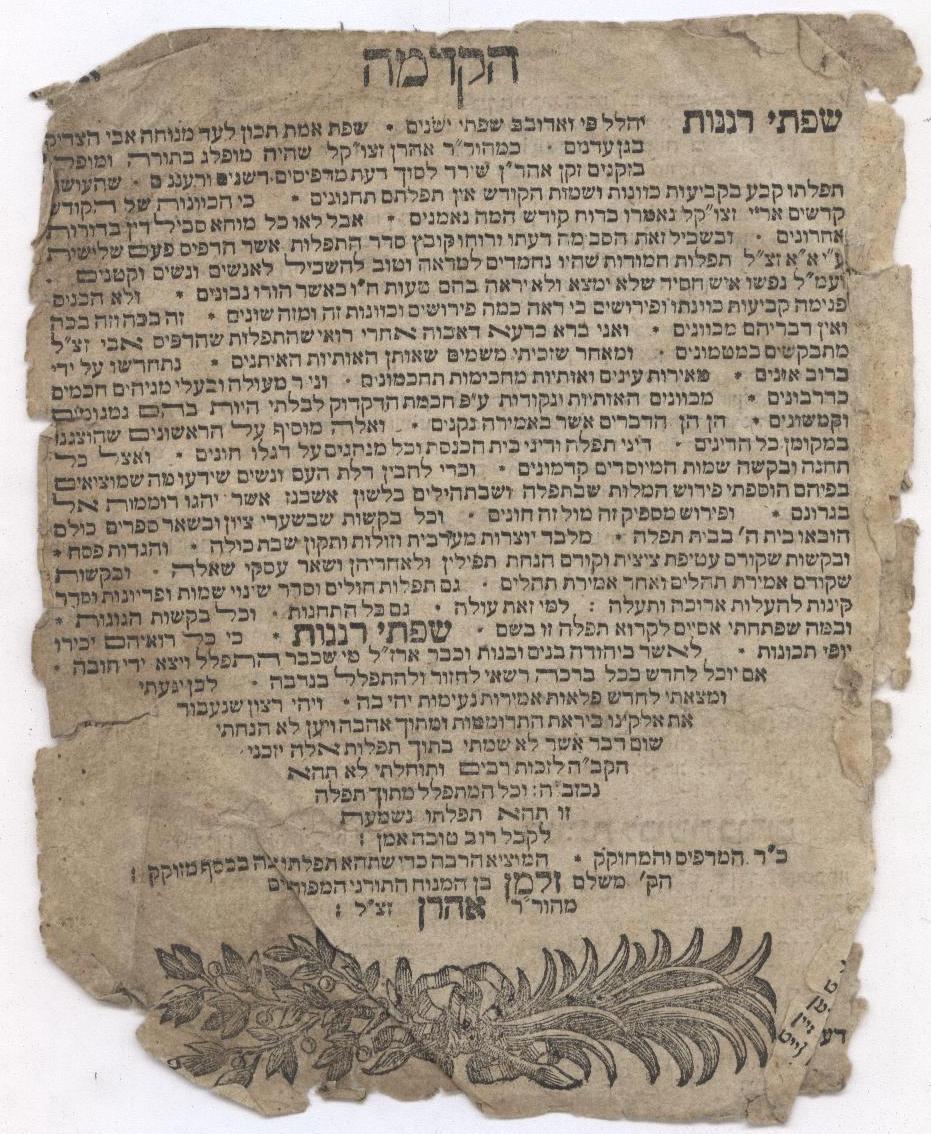 הקדמה
שפתי רננות יהלל פי ואדובב שפתי ישנים * שפת אמת תכון לעד מנוחה אבי הצדיק
בגן עדנים * כמהור״ר אהרן זצו״קל שהיה מופלג בתורה ומופלא
בזקנים זקן אהר״ן שירד לסוף דעת מדפיסים דשנים ורעננים * שהעושה
תפלתו קבע בקביעות כוונות ושמות הקודש אין תפלתם תחנונים * כי הכוונות של הקודש
קדשים אר״י זצו״קל נאמרו ברוח קודש המה נאמנים * אבל לאו כל מוחא סביל דין בדורות
אחרונים * ובשביל זאת הסכימה דעתו ורוחו קובץ סדר התפלות אשר הדפיס פעם שלישית
ע״י א״א זצ״ל תפלות חמודות שהיו נחמדים למראה וטוב להשכיל לאנשים ונשים וקטנים *
ועמ״ל נפשו איש חסיד שלא ימצא ולא יראה בהם טעות ח״ו כאשר הורו נבונים * ולא הכניס
פנימה קביעות כוונתו ופירושים כי ראה כמה פירושים וכוונות זה ומזה שונים * זה בכה וזה בכה
ואין דבריהם מכוונים * ואני ברא כרעא דאבוה אחרי רואי שהתפלות שהדפיס אבי זצ״ל
מתבקשים במטמונים * ומאחר שזכיתי משמים שאותן האותיות האיתנים * נתחדשו על ידי
ברוב אונים * מאירות עינים ואותיות מחכימות תחכמונים * וניר מעולה ובעלי מגיהים חכמים
כדרבונים * מכוונים האותיות ונקודות ע״פ חכמת הדקדוק לבלתי היות בהם נמנומים
וקמשונים * הן הן הדברים אשר באמירה נקנים * ואלה מוסיף על הראשונים שהוצגנו
במקומן כל הדינים * דיני תפלה ודיני בית הכנסת וכל מנהגים על דגלו חונים * ואצל כל
תחנה ובקשה שמות המיוסדים קדמונים * וכדי להבין דלת העם ונשים שידעו מה שמוציאים
בפיהם הוספתי פירוש המלות שבתפלה ושבתהילים בלשון אשכנז אשר יהגו רוממות אל
בגרונם * ופירוש מספיק זה מול זה חונים * וכל בקשות שבשערי ציון ובשאר ספרים כולם
הובאו בית ה׳ בבית תפלה * מלבד יוצרות מערבית וזולות ותקון שבת כולה * והגדות פסח *
ובקשות שקודם עטיפת ציצית וקודם הנחת תפילין ולאחריהן ושאר עסקי שאלה * ובקשות
שקודם אמירת תהלים ואחר אמירת תהלים * גם תפלות חולים וסדר שינוי שמות ופדיונות וסדר
קינות להעלות ארוכה ותעלה : למי זאת עולה * גם כל התחנות * וכל בקשות הגונות *
ובמה שפתחתי אסיים לקרוא תפלה זו בשם * שפתי רננות * כי כל רואיהם יכירו
יופי תכונות * לאשר ביהודה בנים ובנות וכבר ארז״ל מי שכבר התפלל ויצא ידי חובה *
אם יוכל לחדש בכל ברכה רשאי לחזור ולהתפלל בנדבה * לכן יגעתי
ומצאתי לחדש פלאות אמירות נעימות יהי בה * ויהי רצון שנעבור
את אלקינו ביראת התרוממות ומתוך אהבה ויען לא הנחתי
שום דבר אשר לא שמתי בתוך תפלות אלה יזכני
הקב״ה לזכות רבים ותוחלתי לא תהא
נכזב״ה : וכל המתפלל מתוך תפלה
זו תהא תפלתו נשמעת
לקבל רוב טובה אמן :
כ״ד המדפיס והמחוקק * המוציא הרבה כדי שתהא תפלתו צה בכסף מזוקק :
הק׳ משלם זלמן בן המנוח התורני המפורסם
מהור״ר אהרן זצ״ל :